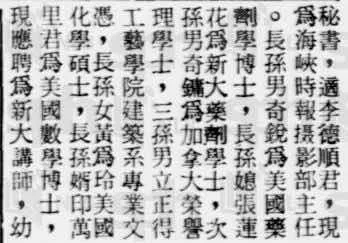 秘書，適李德順君，現
爲海峽時報攝影部主任
。長孫男奇銳爲美國藥
劑學博士，長孫媳張運
花爲新大藥劑學士，次
孫男奇鏞爲加拿大榮譽
理學士，三孫男立正得
工藝學院建築系專業文
憑，長孫女黃爲玲美國
化學碩士，長孫婿印萬
里君爲美國數學博士，
現應聘爲新大講師，幼